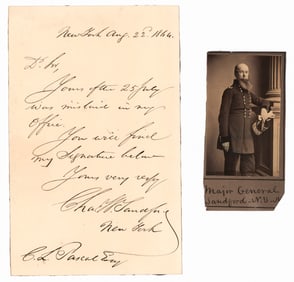 New York Aug. 22d. 1864.
Dr Sir,
Yours of the 25 July
was mislaid in my
Office.
You will find
my Signature below
Yours very respy
Chas W. Sandford
New York
C. L. Pascal Esq
Major General
Sandford. N.Y.